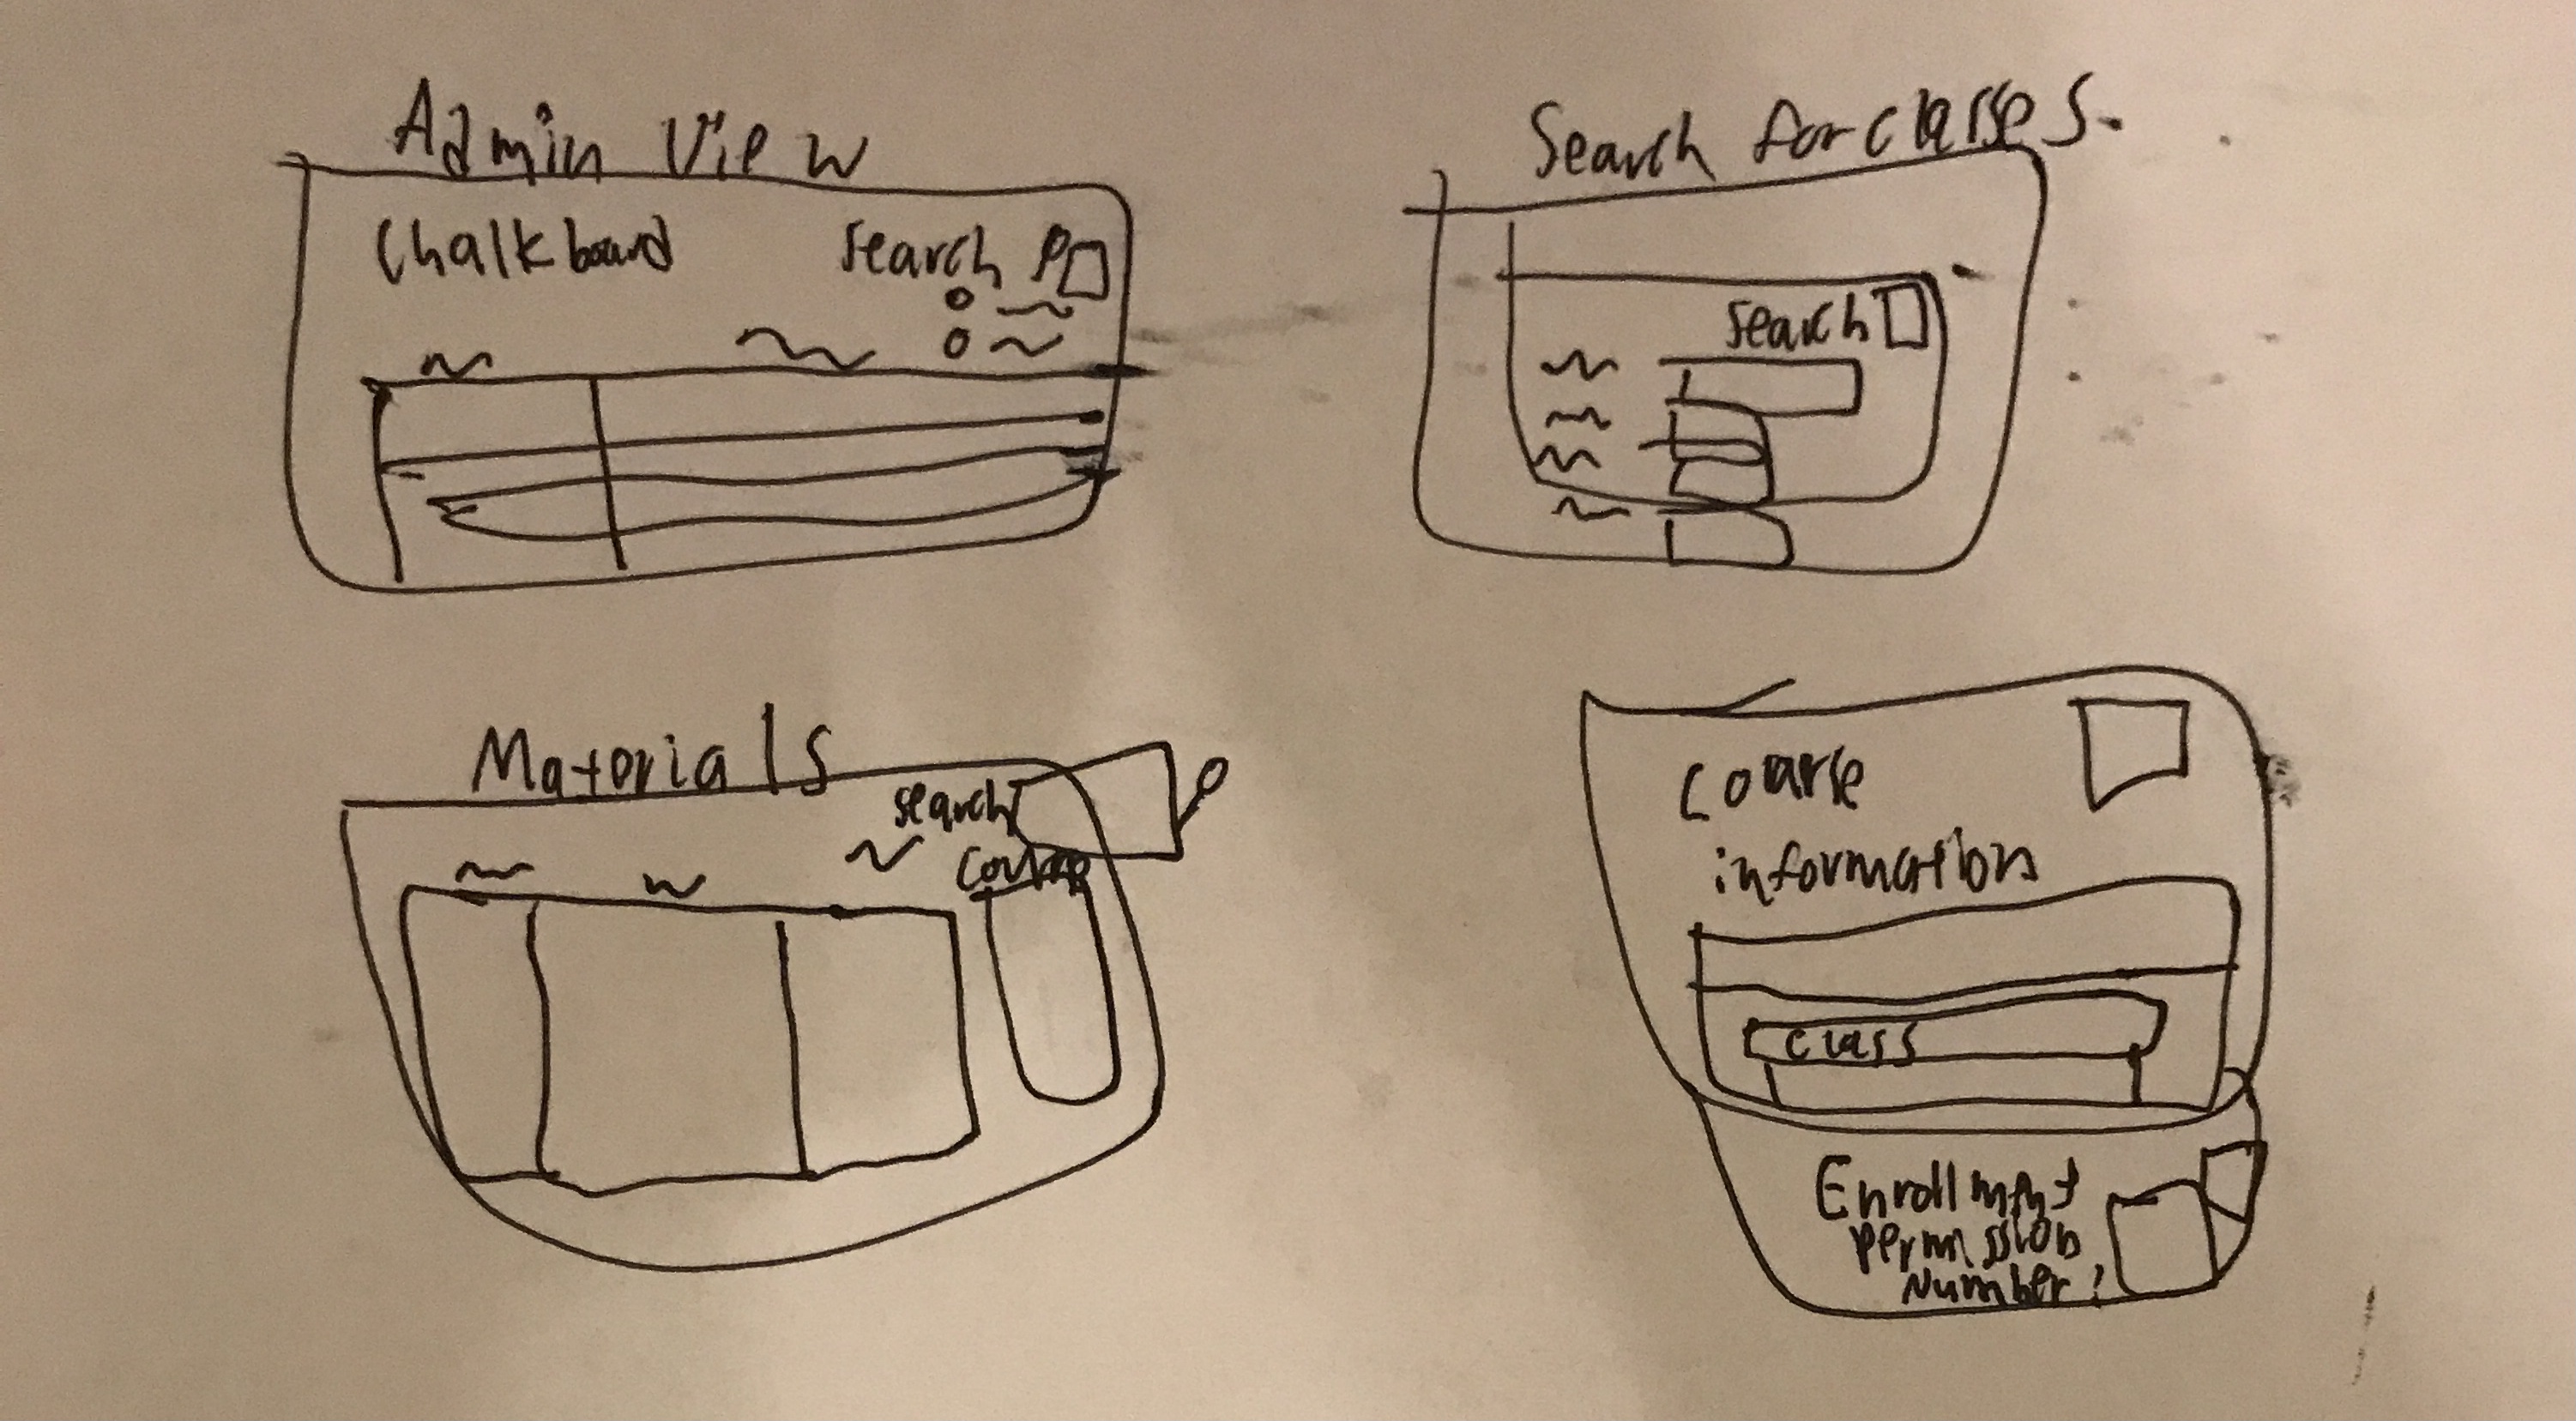 Admin View
Chalkboard
Search
Search for classes.
Search
Materials
Search
Course
information
class
Enrollment
permission
Number: